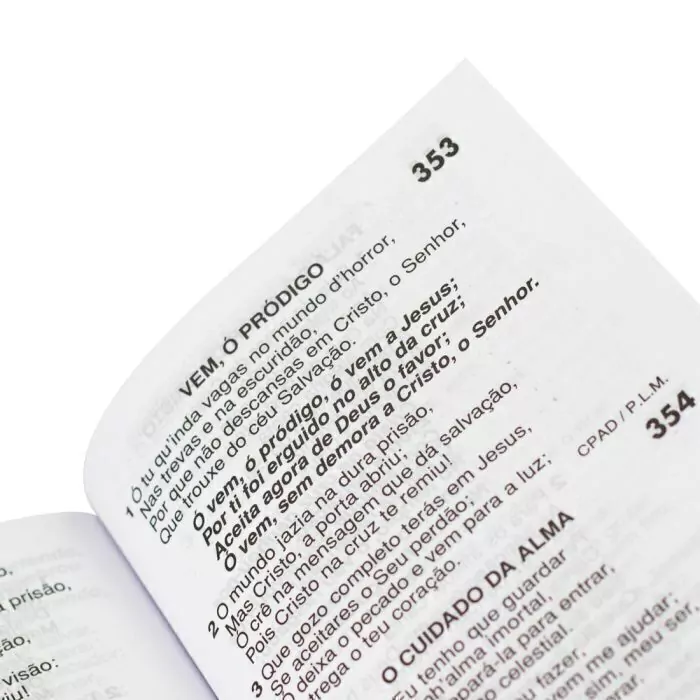 353
VEM, Ó PRÓDIGO
1 Ó tu qu'inda vagas no mundo d'horror,
Nas trevas e na escuridão,
Por que não descansas em Cristo, o Senhor,
Que trouxe do céu Salvação.
Ó vem, ó pródigo, ó vem a Jesus;
Por ti foi erguido no alto da cruz;
Aceita agora de Deus o favor;
Ó vem, sem demora a Cristo, o Senhor.
2 O mundo jazia na dura prisão,
Mas Cristo, a porta abriu;
Ó crê na mensagem que dá salvação,
Pois Cristo na cruz te remiu!
3 Que gozo completo terás em Jesus,
Se aceitares o Seu perdão;
Ó deixa o pecado e vem para a luz;
trega o teu coração.
CPAD / P.L.M.
354
O CUIDADO DA ALMA
Eu tenho que guardar
h'alma imortal,
pará-la para entrar,
celestial.
fazer,
m me ajudar;
im, meu ser
ar.
a prisão,
visão:
iu!